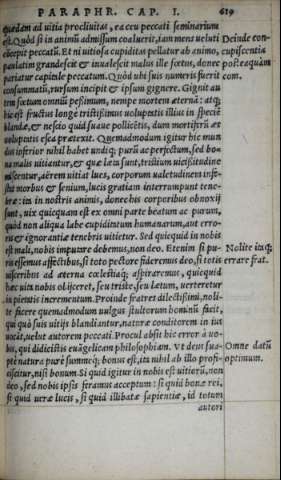 PARAPHR. CAP. I. 619
quædam ad uitia procliuitas, ea ceu peccati seminarium
est. Quòd si in animũ admissum coaluerit, iam mens ueluti
concepit peccatũ. Et ni uitiosa cupiditas pellatur ab animo,
paulatim grandescit & inualescit malus ille fœtus, donec
pariatur capitale peccatum. Quòd ubi suis numeris fuerit
consummatũ, rursum incipit & ipsum gignere. Gignit au
tem fœtum omniũ pessimum, nempe mortem æternã: atq;
hic est fructus longè tristissimus uoluptatis illius in specié
blandæ, & nescio quid suaue pollicétis, dum mortiferũ æs
uoluptatis esca prætexit. Quemadmodum igitur hic mun
dus inferior nihil habet undiq; purũ ac perfectum, sed bo-
na malis uitiantur, & quæ læta sunt, tristium uicissitudine
miscentur, aërem uitiat lues, corporum ualetudinem infe-
stat morbus & senium, lucis gratiam interrumpunt tene-
bræ: ita in nostris animis, donec his corporibus obnoxij
sunt, uix quicquam est ex omni parte beatum ac purum,
quod non aliqua labe cupiditatum humanarum, aut erro-
ris & ignorantiæ tenebris uitietur. Sed quicquid in nobis
est mali, nobis imputare debemus, non deo. Etenim si pu-
ris essemus affectibus, si toto pectore fideremus deo, si totis
uisceribus ad æterna cœlestiaq; aspiraremus, quicquid
hæc uita nobis obijceret, seu triste, seu lætum, uerteretur
in pietatis incrementum. Proinde fratres dilectissimi, noli-
te facere quemadmodum uulgus stultorum hominũ facit,
qui quò suis uitijs blandiantur, naturæ conditorem in ius
uocãt, uelut autorem peccati. Procul absit hic error à uo-
bis, qui didicistis euãgelicam philosophiam. Vt deus sua-
pte natura purè summeq; bonus est, ita nihil ab illo profi-
ciscitur, nisi bonum. Si quid igitur in nobis est uitiorũ, non
deo, sed nobis ipsis feramus acceptum: si quid bonæ rei,
si quid ueræ lucis, si quid illibatæ sapientiæ, id totum
autori
Deinde con-
cupiscentia
posteaquàm
com.
Nolite itaq;
errare frat.
Omne datũ
optimum.